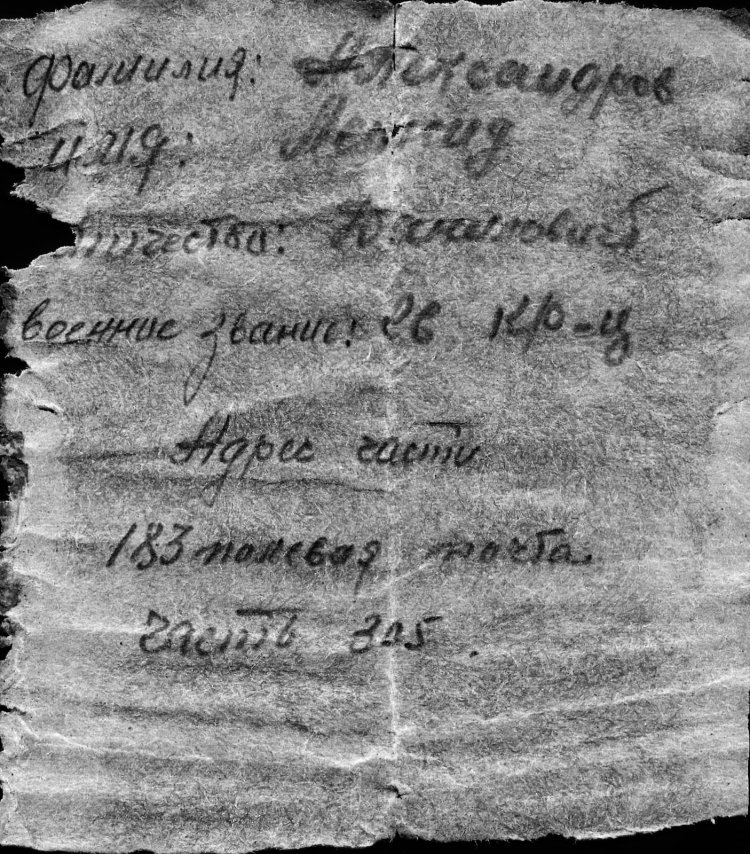 фамилия: Александров
имя: Леонид
отчество:
военное звание: 2в кр-ц
Адрес части
183 полевая почта.
часть 305.